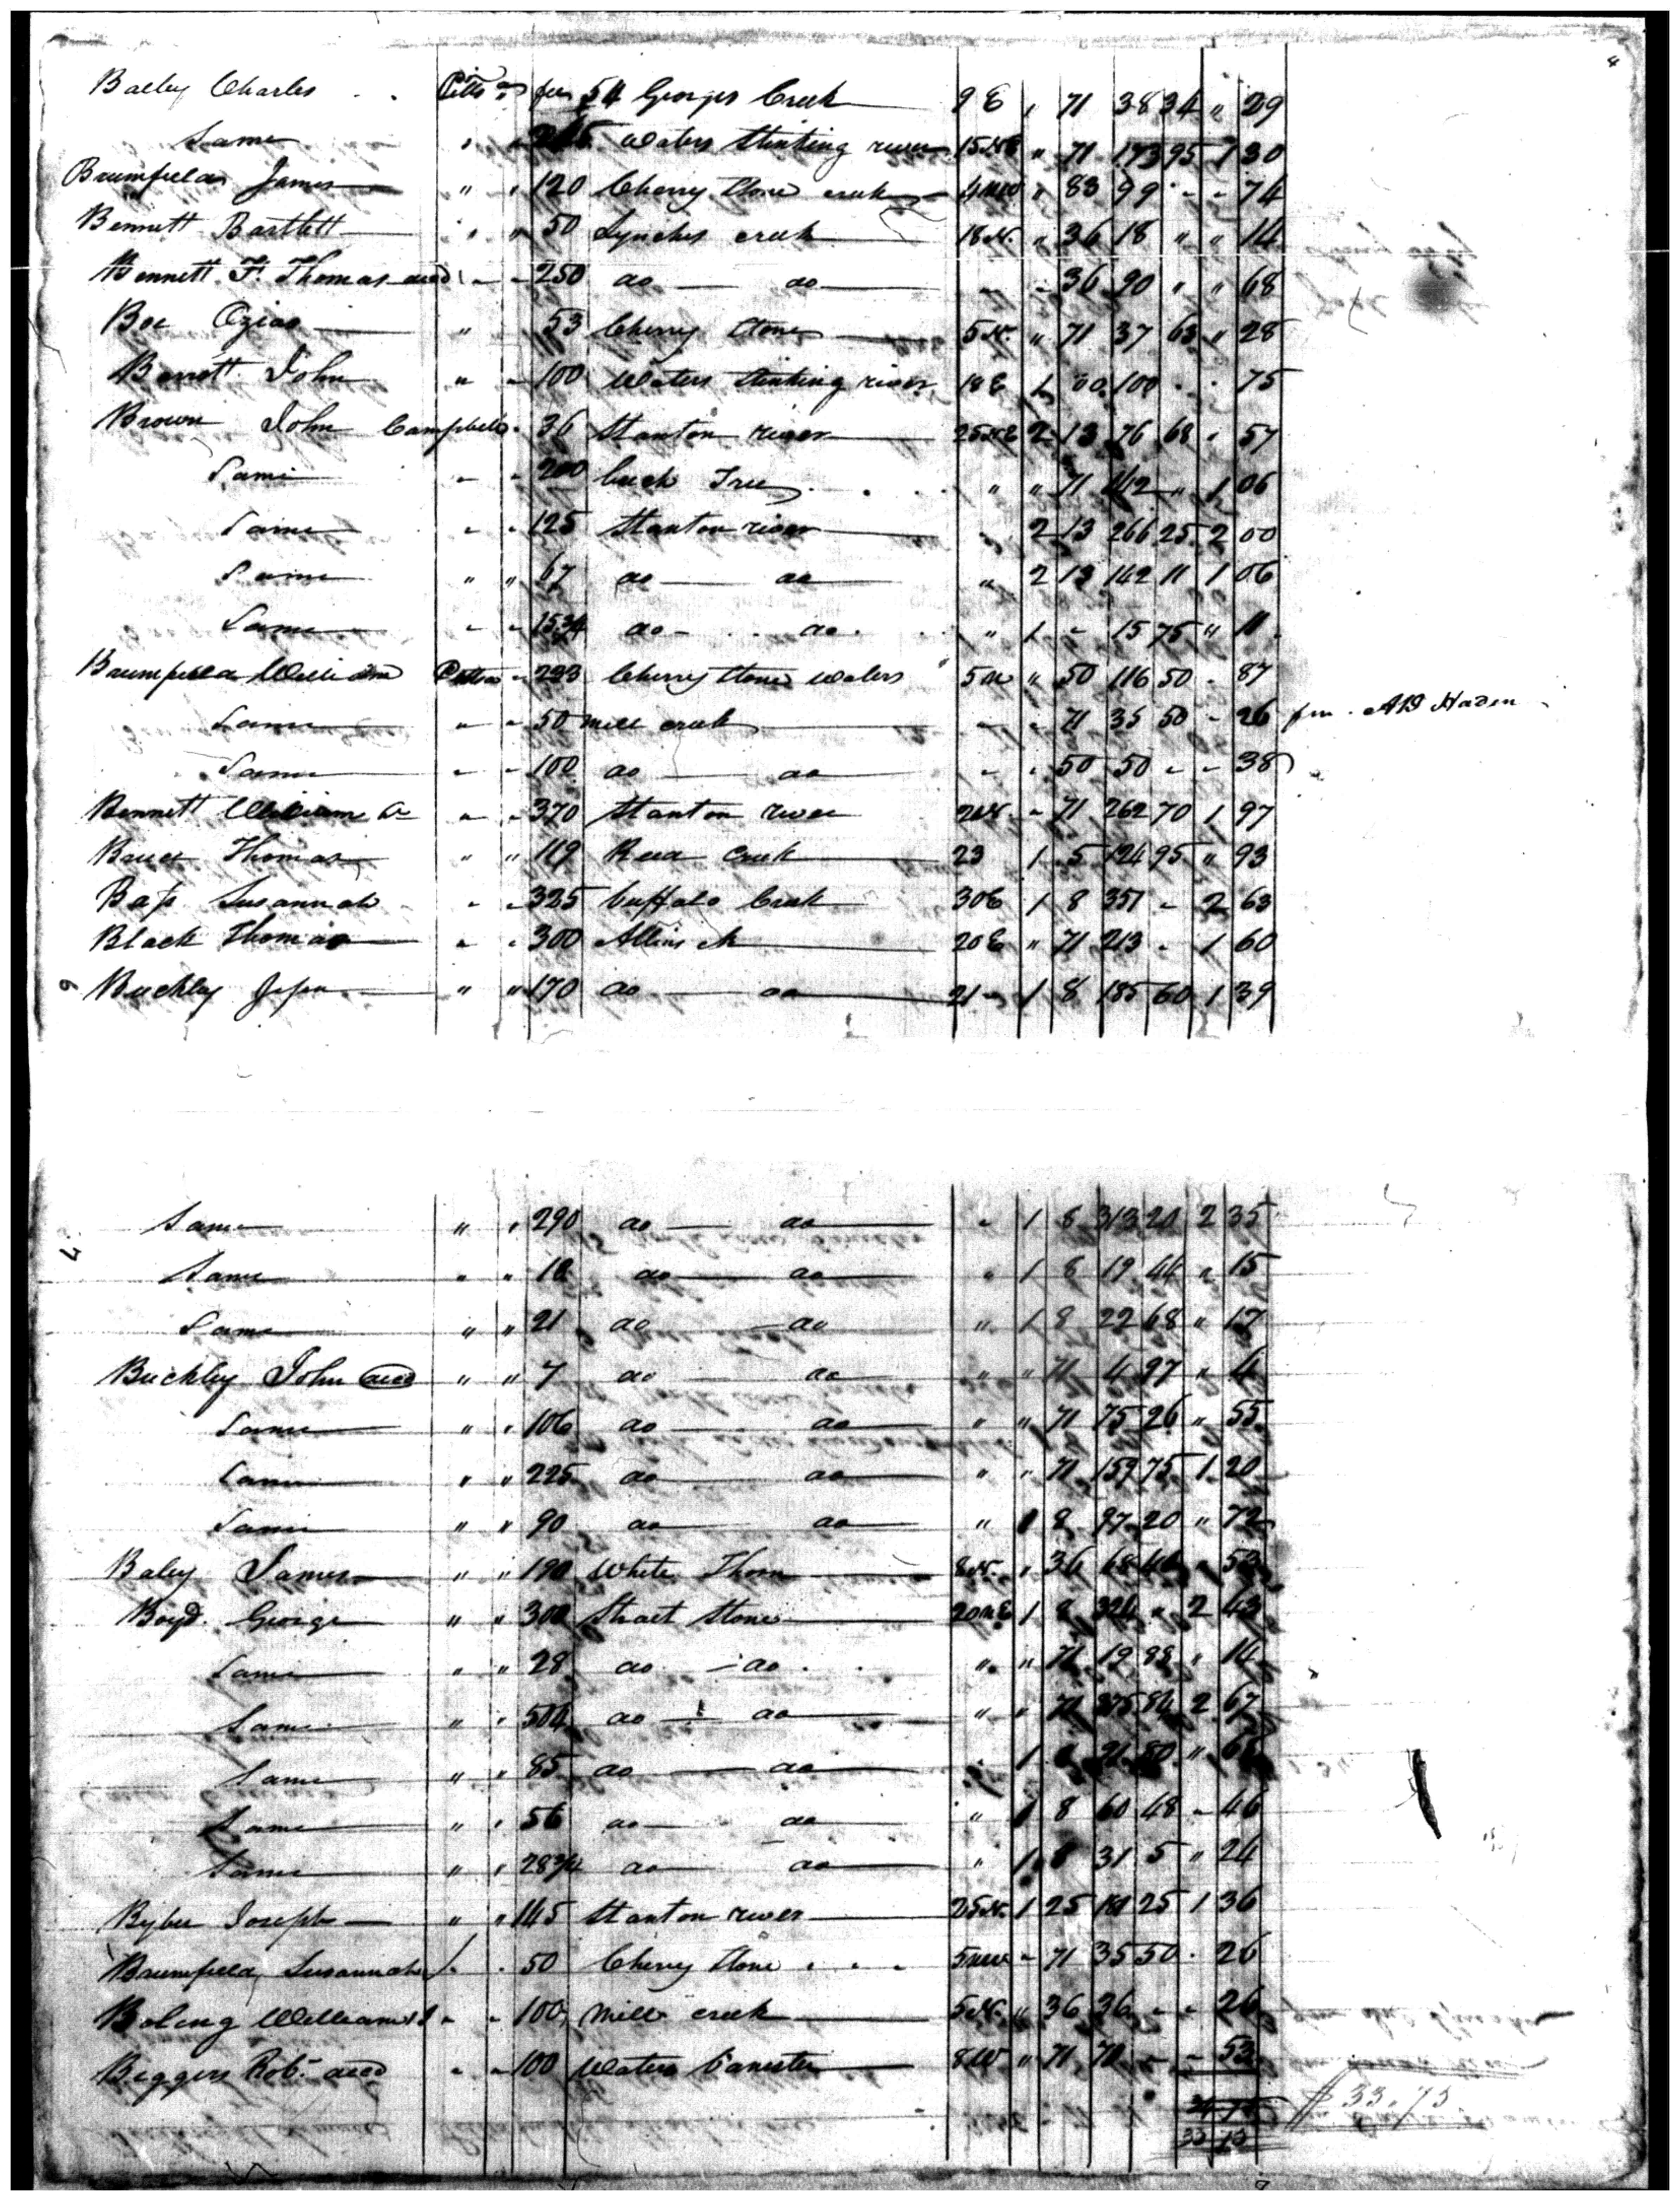 Bailey Charles . . Pitts a fee 54 Georges Creek 9 E " 71 38 34 " 29
Same " " 245 Waters Stinking river 15 NE " 71 173 95 1 30
Brumfield James " " 120 Cherry Stone creek 4 NW " 83 99 - - 74
Bennett Bartlett " " 50 Lynches creek 18 N. " 36 18 " " 14
Bennett F. Thomas decd " - 250 do do - - 36 90 " " 68
Boe Ozias " 53 Cherry Stone 5 N. " 71 37 63 " 28
Barrott John " - 100 Waters Stinking river 18 E 1 00 100 - . 75
Brown John Campbell . 36 Stanton river 25 NE 2 13 76 68 . 57
Same - - 200 buck Tree . . . " " 71 142 " 1 06
Same - - 125 Stanton river . 2 13 266 25 2 00
Same " " 67 do do " 2 13 142 11 1 06
Same - - 15 3/4 do - . . do . . . " 1 - 15 75 " 11
Brumfield William Pittsa - 233 Cherry Stone waters " 5 N " 50 116 50 - 87
Same " - 50 mill creek - - 71 35 50 - 26 fm . A D Haden
Same - - 100 do do - . 50 50 - - 38
Bennett William a - - 370 Stanton river 26 N. - 71 262 70 1 97
Bruce Thomas " " 119 Reed Creek 23 1 5 124 95 " 93
Bass Susannah - - 325 buffalo Creek 30 E 1 8 351 - 2 63
Black Thomas - - 300 Allins ck 20 E " 71 213 - 1 60
Buckley Jesse " " 170 do do 21 - 1 8 185 60 1 39
Same " " 290 do do - 1 8 313 20 2 35
Same " " 18 do do " 1 8 19 44 " 15
Same " " 21 do do " 1 8 22 68 " 17
Buckley John decd " " 7 do do " " 71 4 97 " 4
Same " " 106 do do " " 71 75 26 " 55
Same " " 225 do do " " 71 159 75 1 20
Same " " 90 do do " 1 8 97 20 " 72
Baley James " " 190 White Thorn 8 N. " 36 68 40 " 53
Boyd George " " 300 Strait Stone 20 NE 1 8 324 " 2 43
Same " " 28 do - do . . " " 71 19 88 " 14
Same " " 504 do do " " 71 375 84 2 67
Same " " 85 do do . 1 8 91 80 " 68
Same " " 56 do do " 1 8 60 48 - 46
Same " " 28 3/4 do do " 1 8 31 5 " 24
Bybee Joseph " " 145 Stanton river 25 N. 1 25 181 25 1 36
Brumfield Susannah . . 50 Cherry Stone . . . 5 NW - 71 35 50 . 26
Boling William - - 100 Mill creek 5 N. " 36 36 - - 26
Beggers Robt. decd - - 100 Waters Banister 8 W " 71 71 - - 53
$33.75
33 75